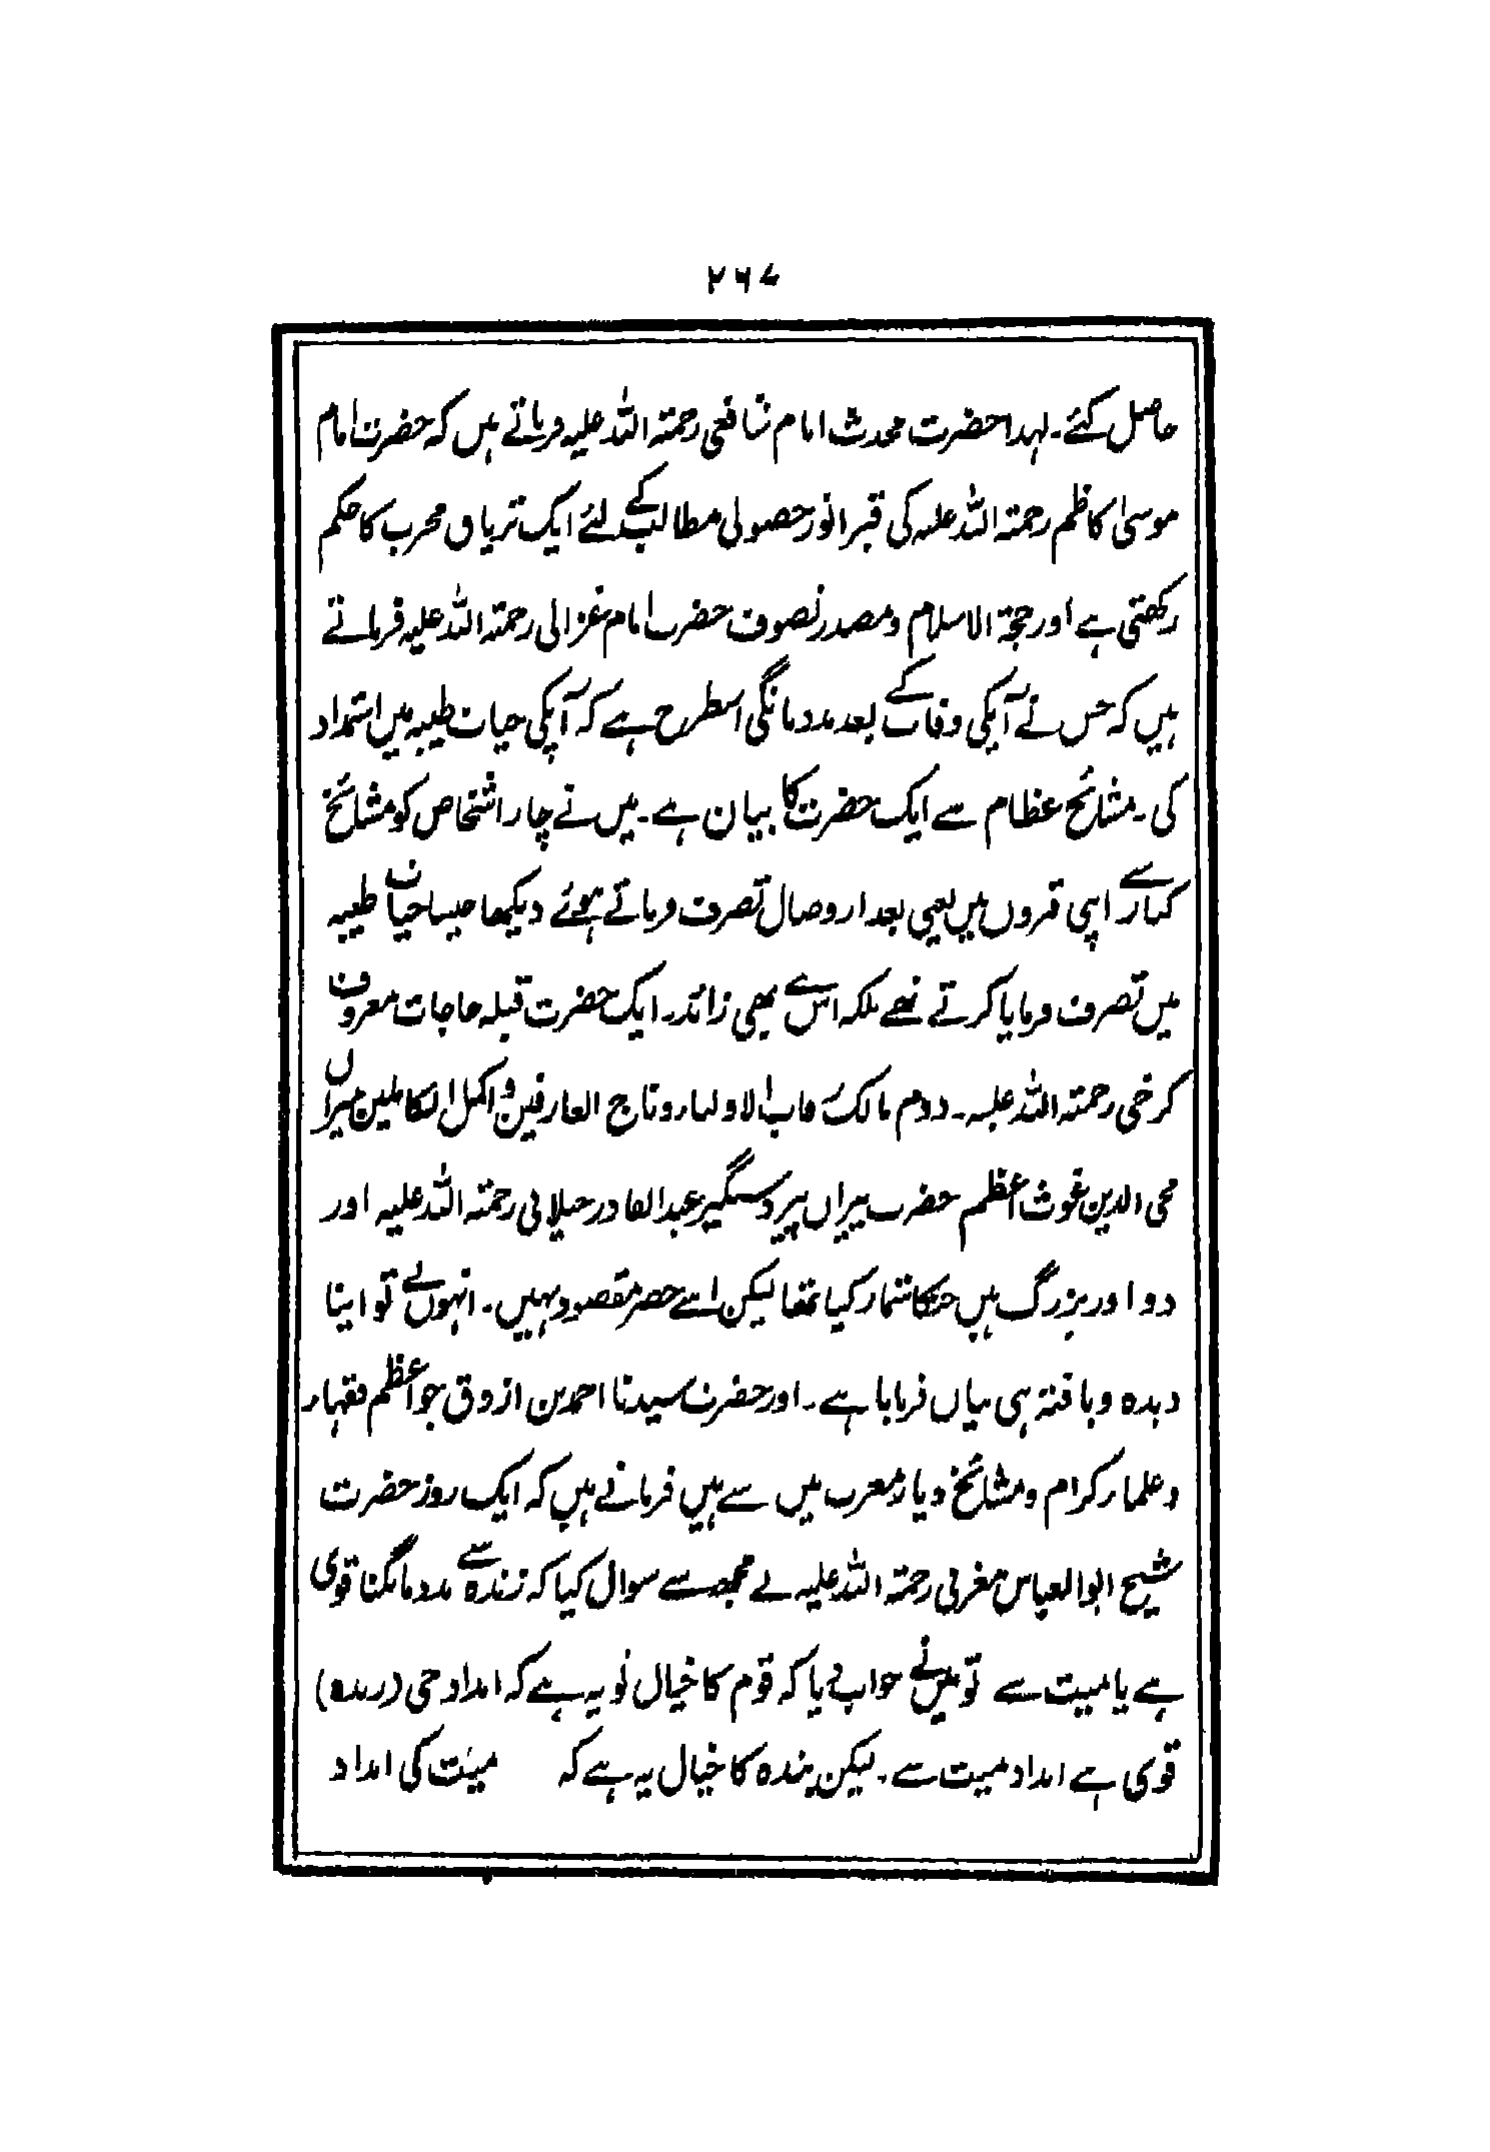 ۲۶۷
حاصل کئے۔ لہذا حضرت محدث امام شافعی رحمتہ اللہ علیہ فرماتے ہیں کہ حضرت امام
موسیٰ کاظم رحمتہ اللہ علیہ کی قبر انور حصولی مطالب کے لئے ایک تریاق مجرب کا حکم
رکھتی ہے اور حجۃ الاسلام و مصدر تصوف حضرت امام غزالی رحمتہ اللہ علیہ فرماتے
ہیں کہ جس نے آپکی وفات کے بعد مدد مانگی اسطرح ہے کہ آپکی حیات طیبہ میں استمداد
کی۔ مشائخ عظام سے ایک حضرت کا بیان ہے۔ میں نے چار اشخاص کو مشائخ
کبار سے اپنی قبروں میں یعنی بعد از وصال تصرف فرماتے ہوئے دیکھا جیسا حیات طیبہ
میں تصرف فرمایا کرتے تھے بلکہ اس سے بھی زائد۔ ایک حضرت قبلہ حاجات معروف
کرخی رحمتہ اللہ علیہ۔ دوم مالک رقاب الاولیاء و تاج العارفین و اکمل الکاملین میراں
محی الدین غوث اعظم حضرت پیراں پیر دستگیر عبدالقادر جیلانی رحمتہ اللہ علیہ اور
دو اور بزرگ ہیں جنکا شمار کیا تھا لیکن اسے حصر مقصود نہیں۔ انہوں نے تو اپنا
دیدہ و یافتہ ہی بیاں فرمایا ہے۔ اور حضرت سیدنا احمد بن ازروق جو اعظم فقہاء
و علماء کرام و مشائخ دیار مغرب میں سے ہیں فرماتے ہیں کہ ایک روز حضرت
شیخ ابوالعباس مغربی رحمتہ اللہ علیہ نے مجھ سے سوال کیا کہ زندہ سے مدد مانگنا قوی
ہے یا میت سے تو میں نے جواب دیا کہ قوم کا خیال تو یہ ہے کہ امداد حی (زندہ)
قوی ہے امداد میت سے۔ لیکن بندہ کا خیال یہ ہے کہ میت کی امداد